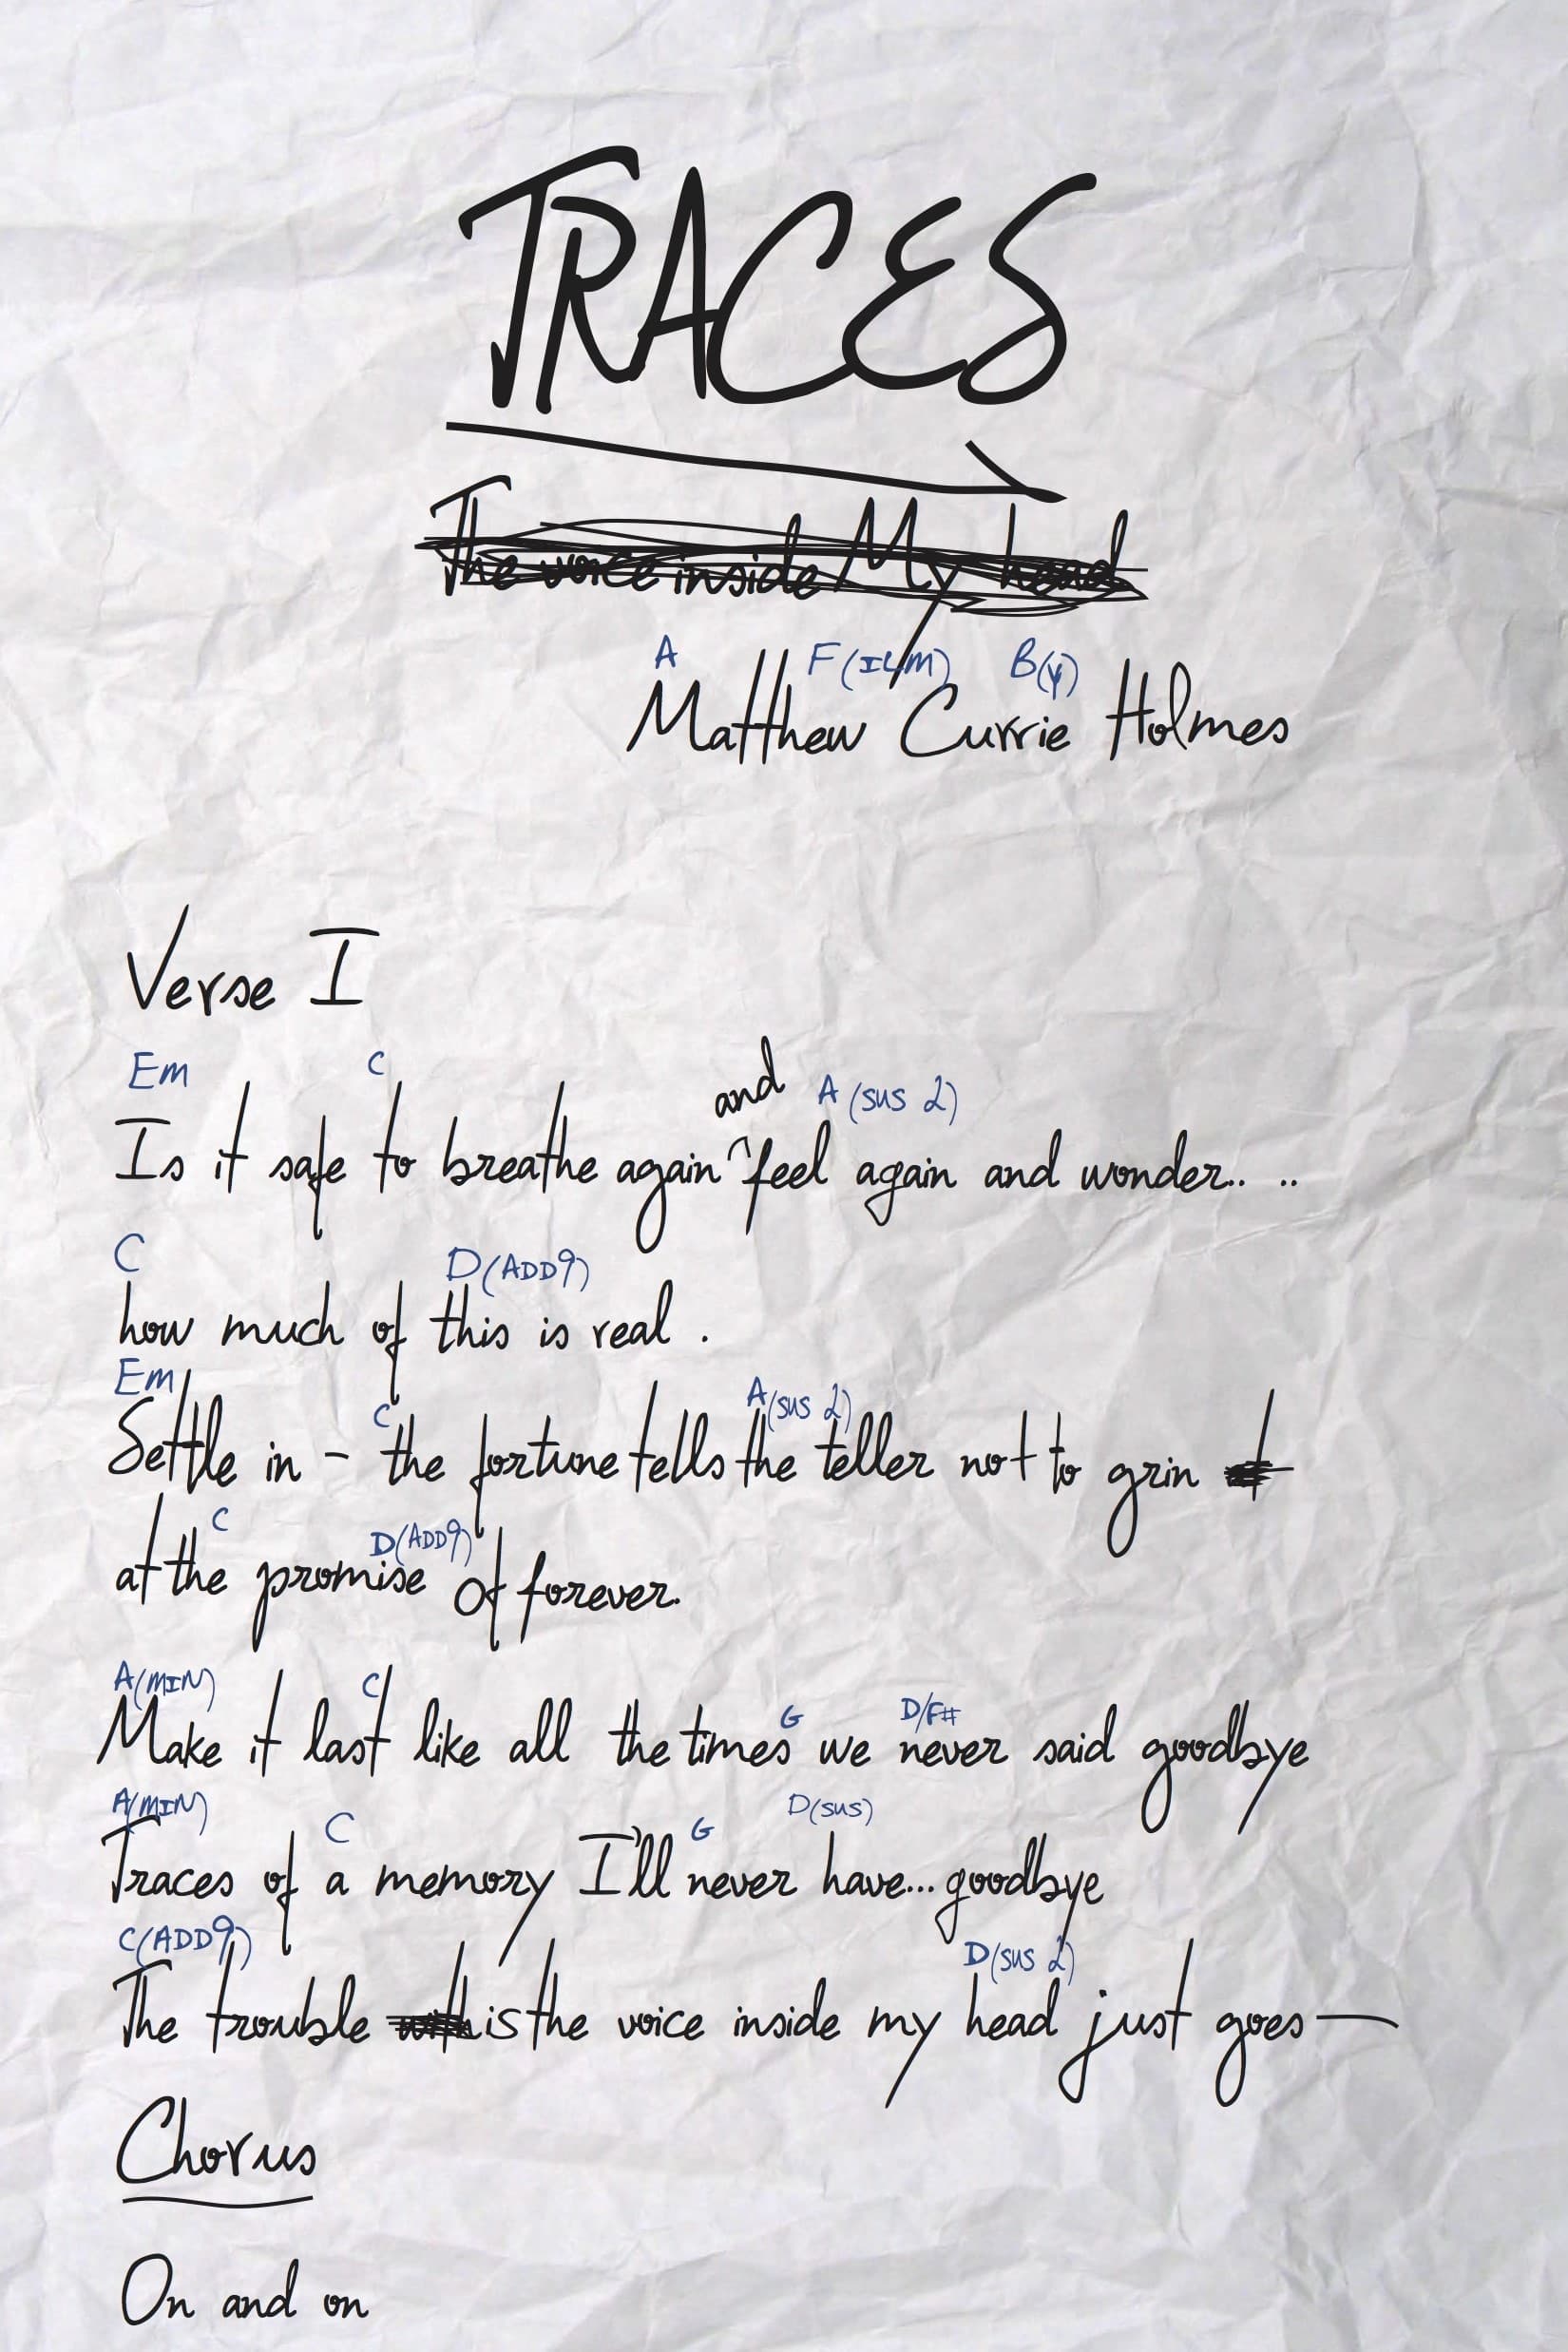 TRACES
The voice inside My head
A F(ILM) B(Y)
Matthew Currie Holmes
Verse I
Em C and A (sus 2)
Is it safe to breathe again ^ feel again and wonder.. ..
C D(ADD9)
how much of this is real .
Em C A(sus 2)
Settle in - the fortune tells the teller not to grin
C D(ADD9)
at the promise of forever.
A(MIN) C G D/F#
Make it last like all the times we never said goodbye
A(MIN) C G D(sus)
Traces of a memory I'll never have... goodbye
C(ADD9) D(sus 2)
The trouble with is the voice inside my head just goes—
Chorus
On and on